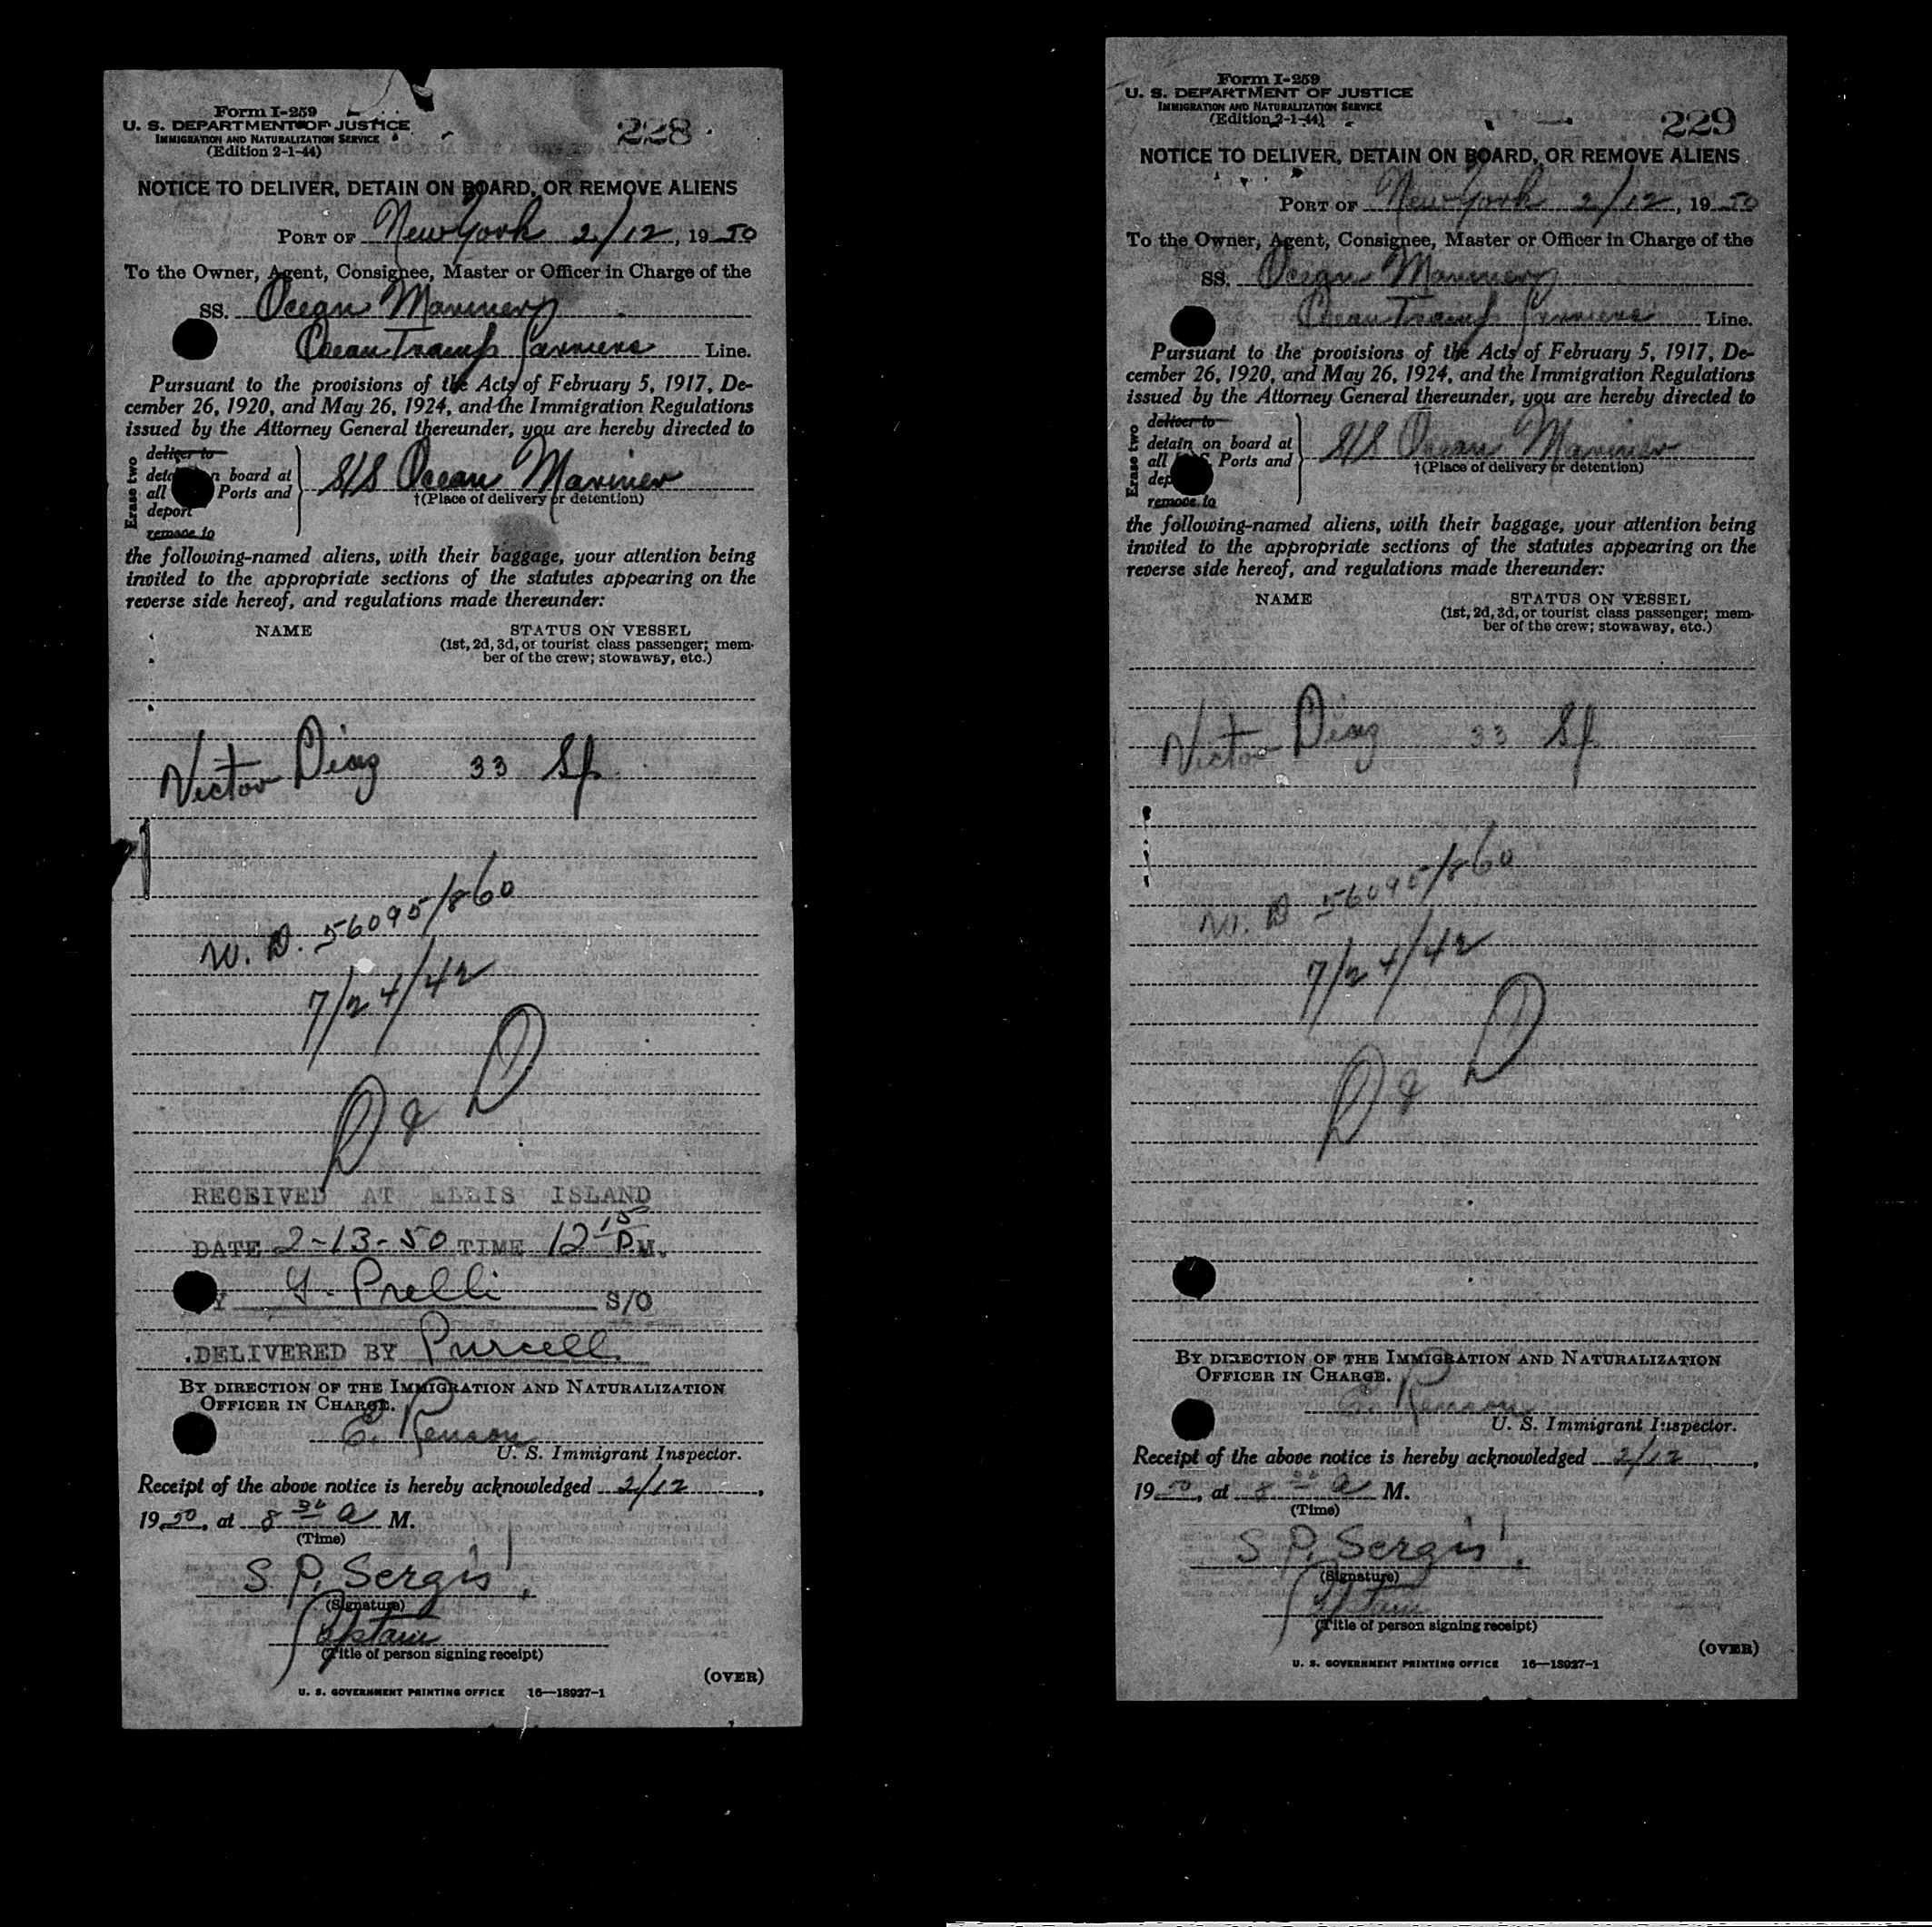 Form I-259
U. S. DEPARTMENT OF JUSTICE
IMMIGRATION AND NATURALIZATION SERVICE
(Edition 2-1-44)
228
NOTICE TO DELIVER, DETAIN ON BOARD, OR REMOVE ALIENS
PORT OF New York 2/12, 1950
To the Owner, Agent, Consignee, Master or Officer in Charge of the
SS. Ocean Mariner
Ocean Tramp Carriers Line.
Pursuant to the provisions of the Acts of February 5, 1917, De-
cember 26, 1920, and May 26, 1924, and the Immigration Regulations
issued by the Attorney General thereunder, you are hereby directed to
Erase two
deliver to
on board at
all Ports and
deport
remove to
S/S Ocean Mariner
†(Place of delivery or detention)
the following-named aliens, with their baggage, your attention being
invited to the appropriate sections of the statutes appearing on the
reverse side hereof, and regulations made thereunder:
NAME STATUS ON VESSEL
(1st, 2d, 3d, or tourist class passenger; mem-
ber of the crew; stowaway, etc.)
Victor Diaz 33 Sp.
W. D. 56095/860
7/24/42
D & D
RECEIVED AT ELLIS ISLAND
DATE 2-13-50 TIME 12 15 P.M.
Prelli S/O
DELIVERED BY Purcell
BY DIRECTION OF THE IMMIGRATION AND NATURALIZATION
OFFICER IN CHARGE.
E. Renson
U. S. Immigrant Inspector.
Receipt of the above notice is hereby acknowledged 2/12,
1950, at 8 30 a M.
(Time)
S P. Sergis
(Signature)
Captain
(Title of person signing receipt)
(OVER)
U. S. GOVERNMENT PRINTING OFFICE 16—18927-1
Form I-259
U. S. DEPARTMENT OF JUSTICE
IMMIGRATION AND NATURALIZATION SERVICE
(Edition 2-1-44)
229
NOTICE TO DELIVER, DETAIN ON BOARD, OR REMOVE ALIENS
PORT OF New York 2/12, 1950
To the Owner, Agent, Consignee, Master or Officer in Charge of the
SS. Ocean Mariner
Ocean Tramp Carriers Line.
Pursuant to the provisions of the Acts of February 5, 1917, De-
cember 26, 1920, and May 26, 1924, and the Immigration Regulations
issued by the Attorney General thereunder, you are hereby directed to
Erase two
deliver to
detain on board at
all Ports and
remove to
S/S Ocean Mariner
†(Place of delivery or detention)
the following-named aliens, with their baggage, your attention being
invited to the appropriate sections of the statutes appearing on the
reverse side hereof, and regulations made thereunder:
NAME STATUS ON VESSEL
(1st, 2d, 3d, or tourist class passenger; mem-
ber of the crew; stowaway, etc.)
Victor Diaz 33 Sp
W. D 56095/860
7/24/42
D & D
BY DIRECTION OF THE IMMIGRATION AND NATURALIZATION
OFFICER IN CHARGE.
E. Renson
U. S. Immigrant Inspector.
Receipt of the above notice is hereby acknowledged 2/12,
1950, at 8 30 a M.
(Time)
S P. Sergis
(Signature)
Captain
(Title of person signing receipt)
(OVER)
U. S. GOVERNMENT PRINTING OFFICE 16—18927-1